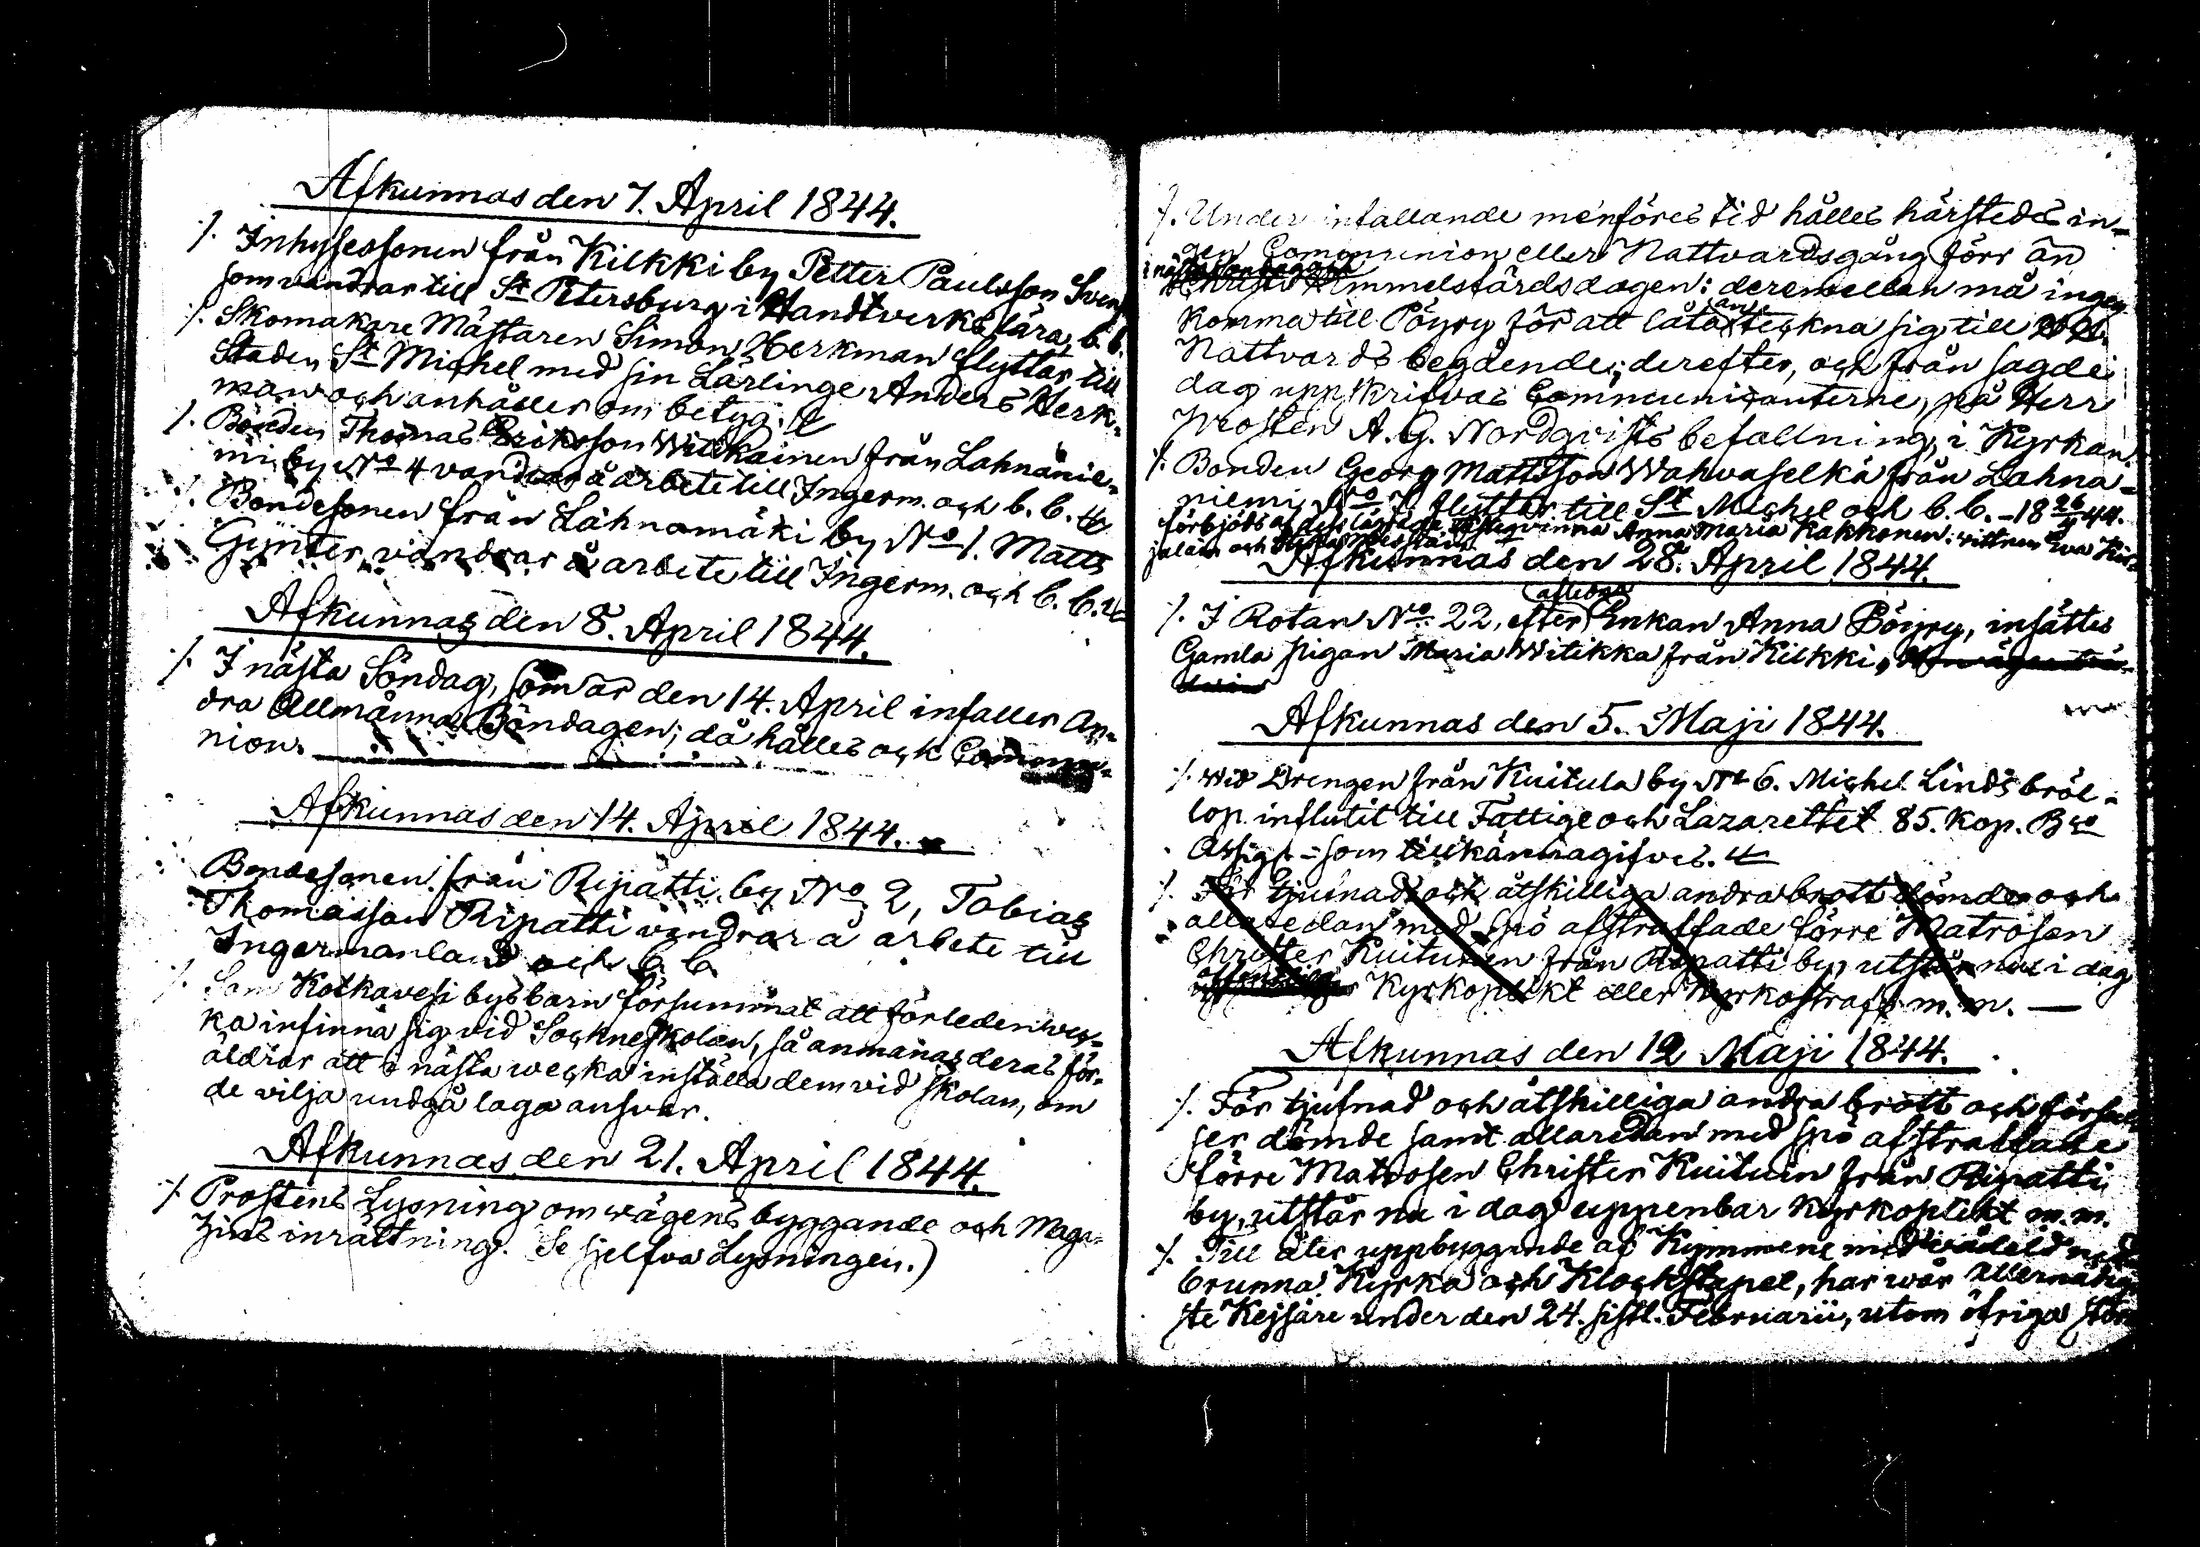 Afkunnas den 7. April 1844.
/. Inhysessonen från Kilkki by Petter Paulsson Sven
som vandrar till St Petersburg i Handtverks lära, b. b.
/. Skomakare Mästaren Simon Herkman flyttar till
Staden St Michel med sin Lärlinge Anders Herk-
man och anhåller om betyg.
/. Bonden Thomas Eriksson Wilskainen från Lahnanie-
mi by No 4 vandrar å arbete till Ingerm. och b. b.
/. Bondesonen från Lahnamäki by No 1. Matts
Gynter vandrar å arbete till Ingerm. och b. b.
Afkunnas den 8. April 1844.
/. I nästa Söndag, som är den 14. April infaller An-
dra Allmänna Böndagen; då hålles ock Commu-
nion.
Afkunnas den 14. April 1844.
Bondesonen från Ripatti by No 2, Tobias
Thomasson Ripatti vandrar å arbete till
Ingermanland och b. b.
/. Som Kotkavesi bys barn försummat att förleden wec-
ka infinna sig vid Sockneskolan, så anmanas deras för-
äldrar att i nästa wecka inställa dem vid skolan, om
de vilja undgå laga ansvar.
Afkunnas den 21. April 1844.
/. Prostens Lysning om vägens byggande och Maga-
zins inrättning. Se sjelfva Lysningen.)
/. Under infallande menföres tid hålles härstedes in-
gen Communion eller Nattvardsgång förr än
Christi Himmelsfärds dagen: deremellan må ingen
komma till Pöyry för att låta an teckna sig till
Nattvards begående; derefter, och från sagde
dag uppskrifvas Communicanterne, på Herr
Prosten A. G. Nordqvists befallning, i Kyrkan.
/. Bonden Georg Mattsson Wahvaselkä från Lahna-
niemi No flyttar till St Michel och b. b. - 18 26/4 44.
förbjöds af dess Anna Maria Kakkonen: vittnen Eva
Afkunnas den 28. April 1844.
/. I Rotan No 22, efter aflidna Enkan Anna Pöyry, insättes
Gamla pigan Maria Witikka från Kilkki,
Afkunnas den 5. Maji 1844.
/. Wid Drengen från Kuitula by No 6. Michel Linds bröl-
lop influtit till Fattige och Lazarettet 85. kop. Bco
Assign. - som tillkännagifves.
/. För tjufnad och åtskilliga andra brott dömde och
allaredan med spö afstraffade förre Matrosen
Christer Kuituin från Ripatti by, utstår nu i dag
Kyrkoplikt eller Kyrkostraff m. m. —
Afkunnas den 12 Maji 1844.
/. För tjufnad och åtskilliga andra brott och förseel-
ser dömde samt allaredan med spö afstraffade
förre Matrosen Christer Kuituin från Ripatti
by, utstår nu i dag uppenbar Kyrkoplikt m. m.
/. Till åter uppbyggande af Kymmene med vådeld ned-
brunna Kyrka och Klockstapel, har wår Allernådig
ste Kejsare under den 24. sistl. Februarii, utom öfriga